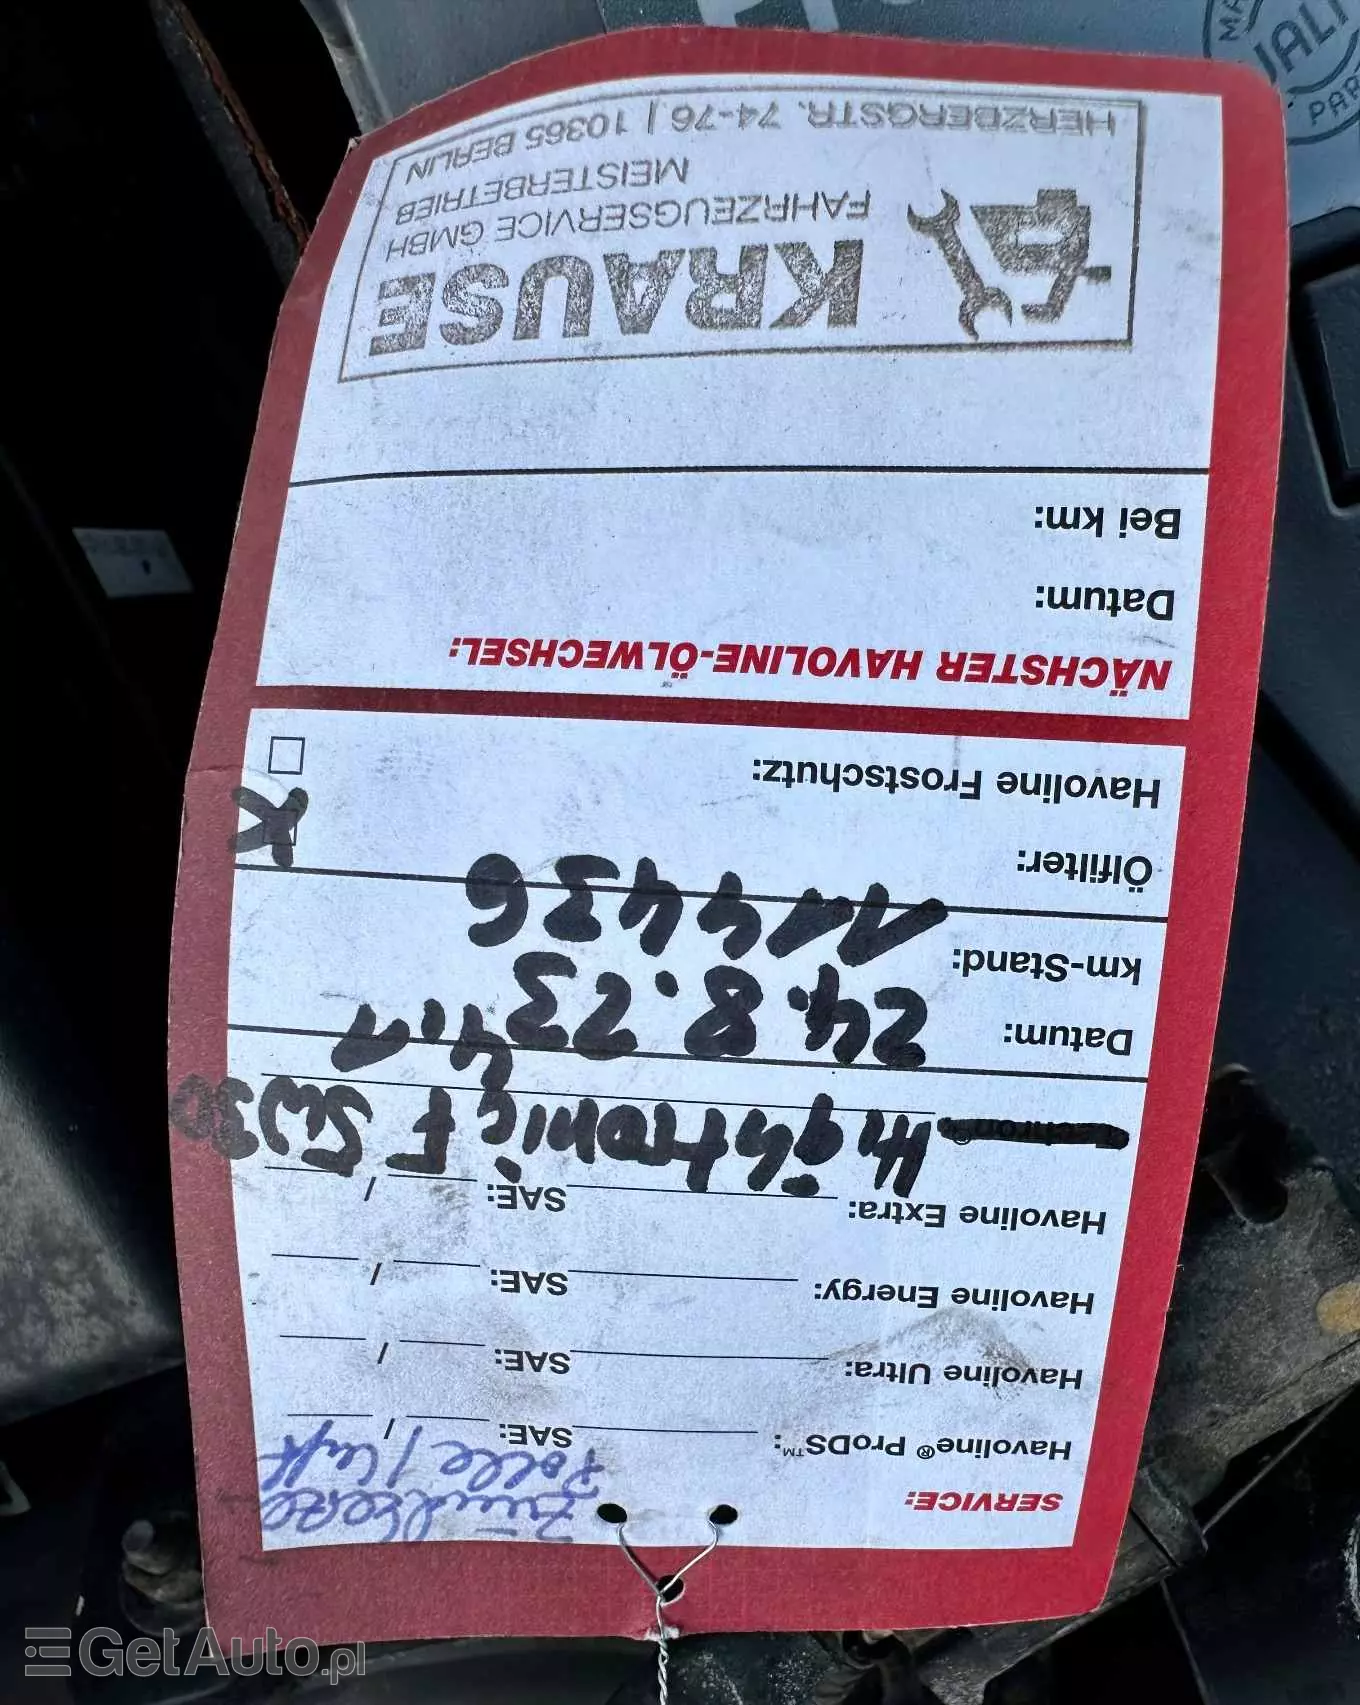 SERVICE:
Zündkerze
Polle / Luft
Havoline® ProDS™: SAE: /
Havoline Ultra: SAE: /
Havoline Energy: SAE: /
Havoline Extra: SAE: /
F 5W30
4,1
Datum: 24.8.23
km-Stand: 114436
Ölfilter:
Havoline Frostschutz:
NÄCHSTER HAVOLINE-ÖLWECHSEL:
Datum:
Bei km:
KRAUSE
FAHRZEUGSERVICE GMBH
MEISTERBETRIEB
HERZBERGSTR. 74-76 | 10365 BERLIN
GetAuto.pl